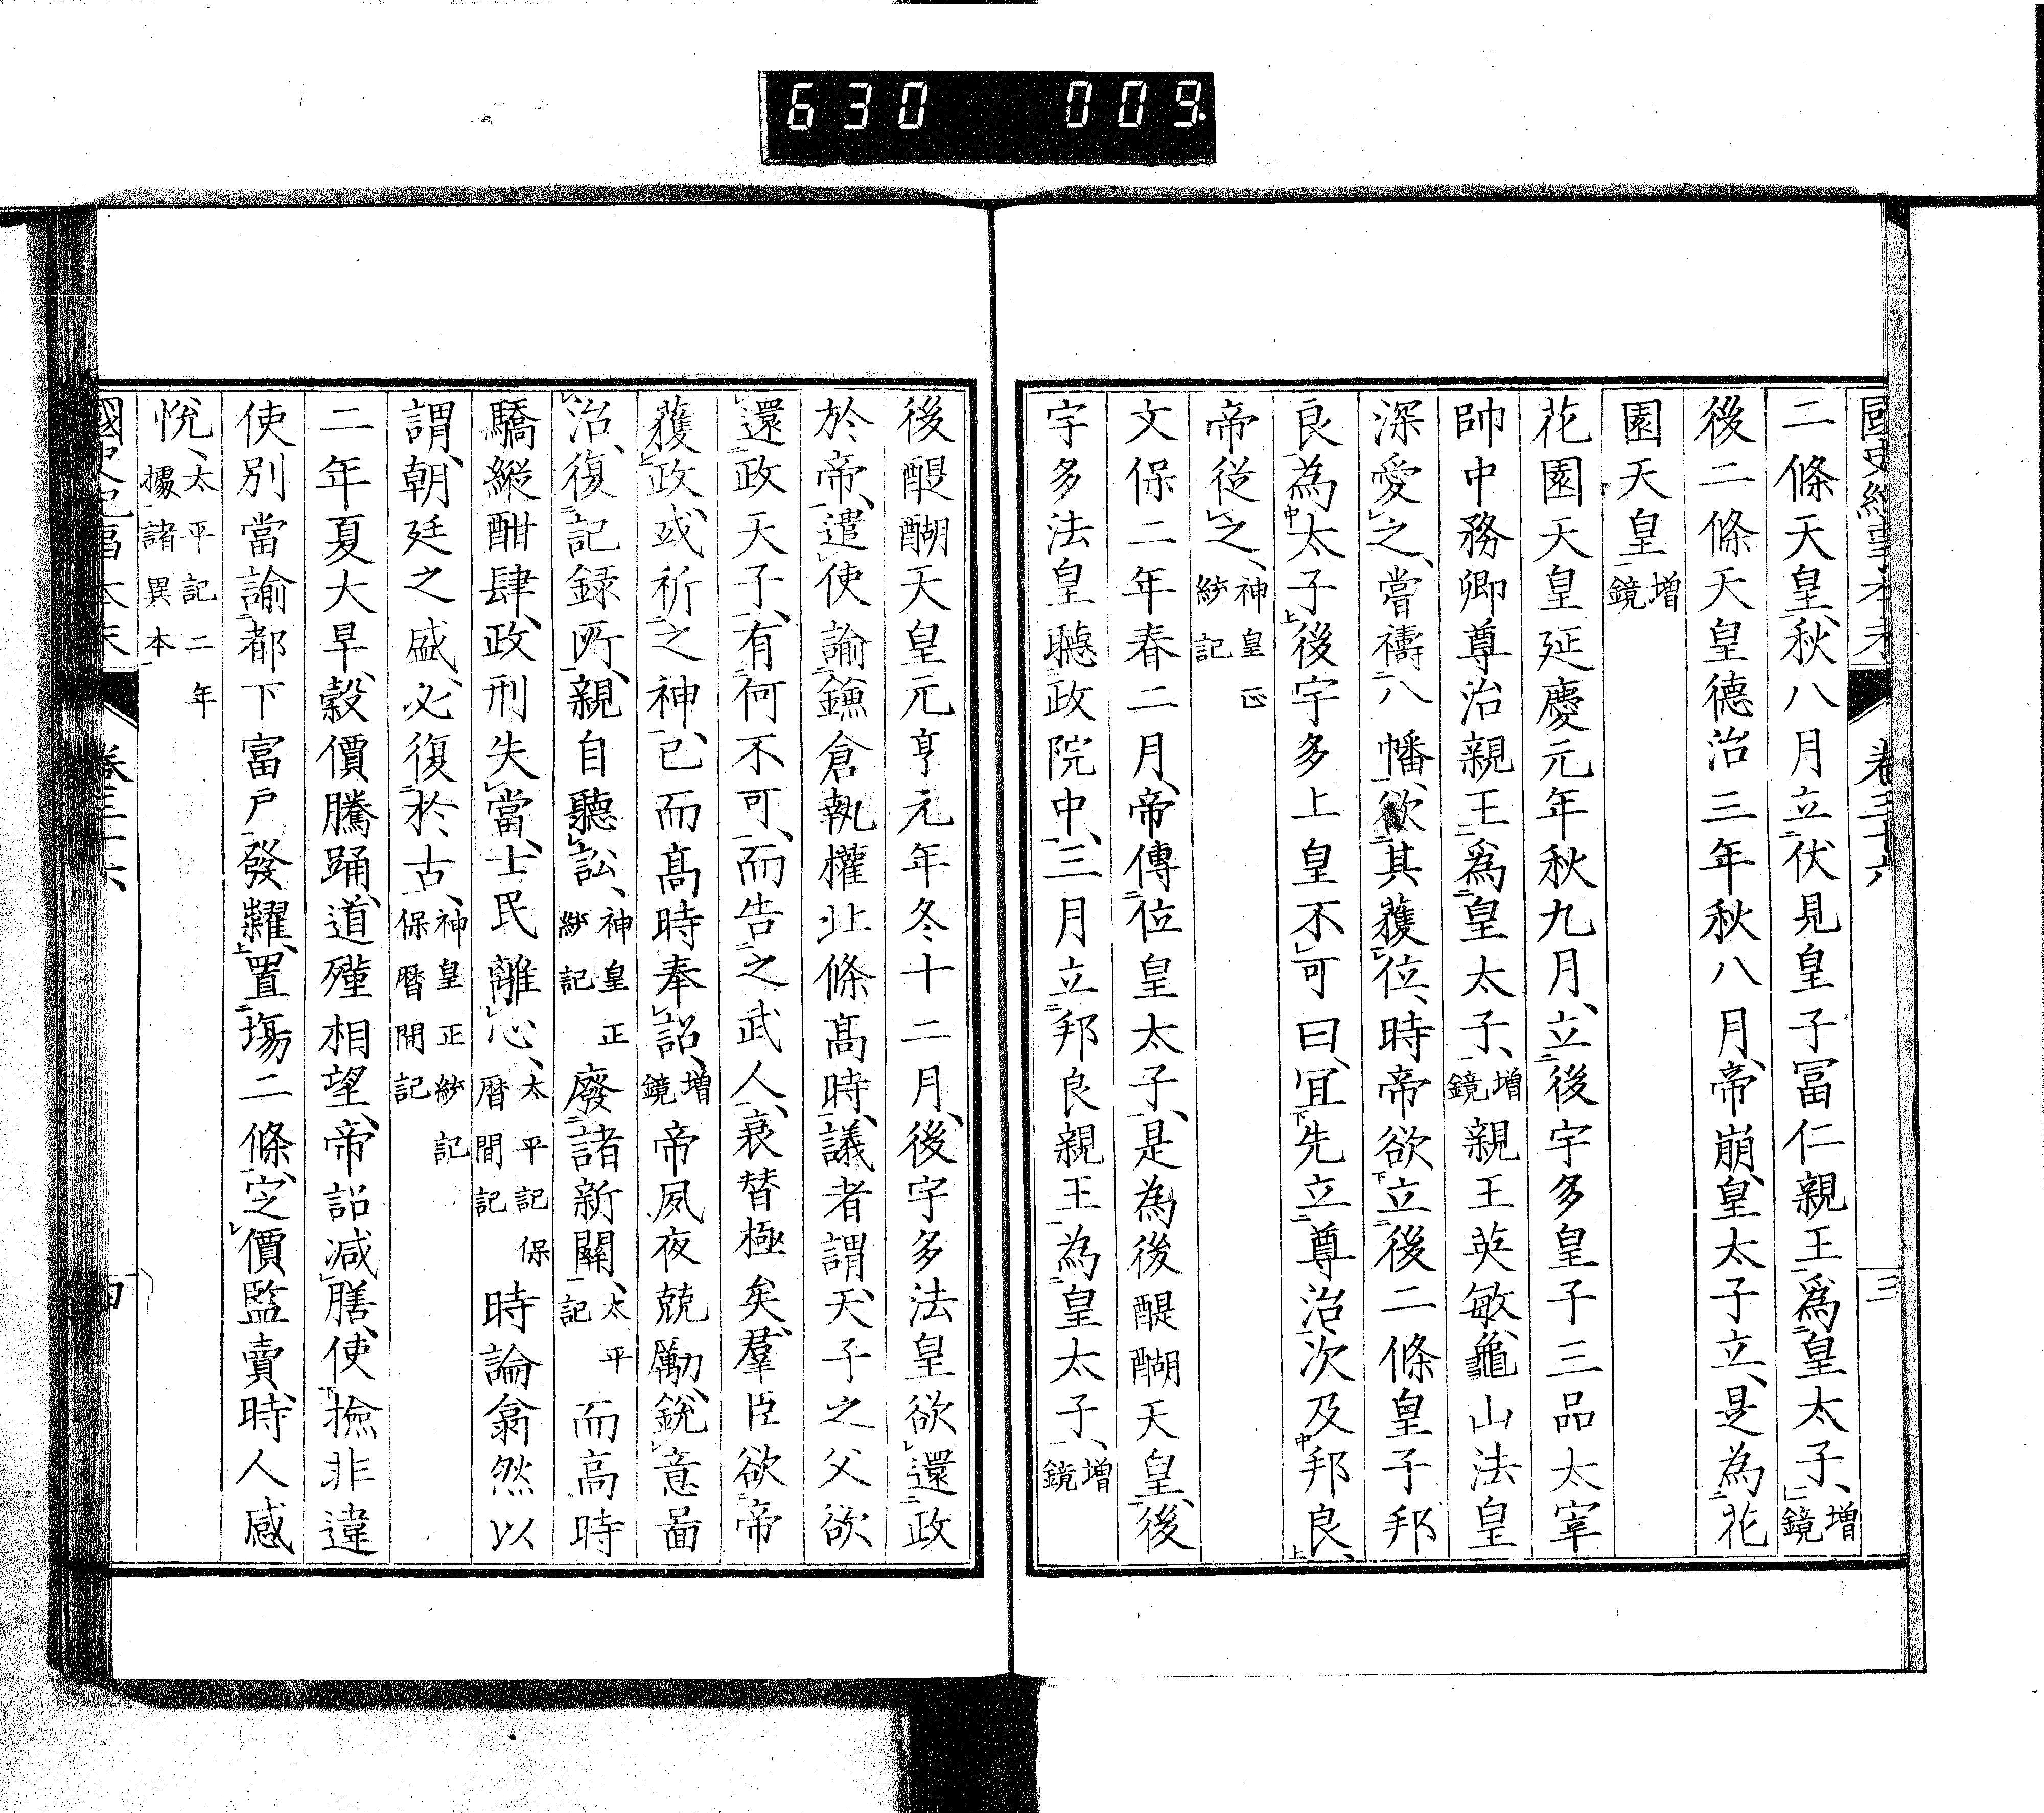 630 009
二條天皇、秋八月立伏見皇子冨仁親王爲皇太子、増鏡
後二條天皇德治三年秋八月、帝崩、皇太子立、是為花
園天皇増鏡
花園天皇延慶元年秋九月、立後宇多皇子三品太宰
帥中務卿尊治親王爲皇太子、増鏡親王英敏、龜山法皇
深愛之、嘗禱八幡、欲其獲位、時帝欲立後二條皇子邦
良為太子後宇多上皇不可曰、宜先立尊治次及邦良、
帝從之、神皇正統記
文保二年春二月、帝傳位皇太子、是為後醍醐天皇、後
宇多法皇聽政院中、三月立邦良親王為皇太子、増鏡
後醍醐天皇元亨元年冬十二月、後宇多法皇欲還政
於帝、遣使諭鎌倉執權北條高時、議者謂、天子之父欲
還政天子、有何不可、而告之武人、衰替極矣、羣臣欲帝
獲政、或祈之神、已而高時奉詔、増鏡帝夙夜兢勵、銳意啚
治、復記録所、親自聽訟、神皇正統記廢諸新關、太平記而高時
驕縱酣肆、政刑失當、士民離心、太平記保曆間記時論翕然以
謂、朝廷之盛、必復於古、神皇正統記保曆間記
二年夏大旱、穀價騰踊、道殣相望、帝詔減膳、使撿非違
使別當諭都下富戶發糶、置場二條、定價監賣、時人感
悅、太平記二年據諸異本
卷三十六
三